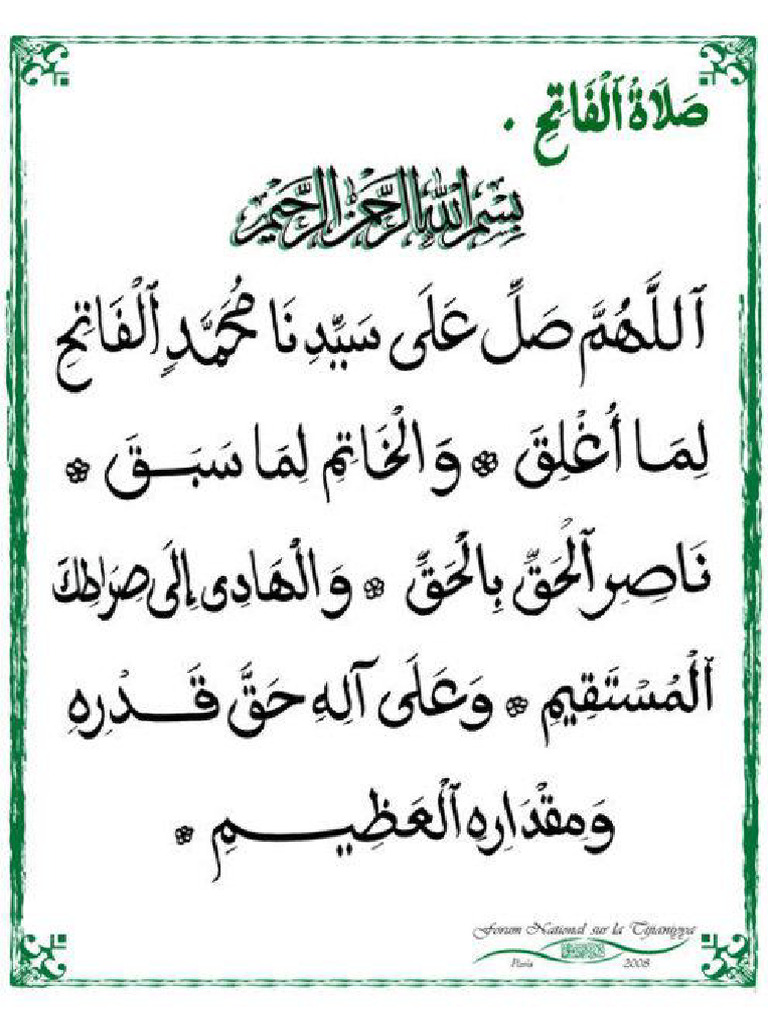 صَلَاةُ ٱلْفَاتِحِ .
بِسْمِ اللهِ الرَّحْمٰنِ الرَّحِيمِ
ٱللَّهُمَّ صَلِّ عَلَى سَيِّدِنَا مُحَمَّدٍ ٱلْفَاتِحِ
لِمَا أُغْلِقَ * وَالْخَاتِمِ لِمَا سَبَقَ *
نَاصِرِ ٱلْحَقِّ بِالْحَقِّ * وَالْهَادِى إِلَى صِرَاطِكَ
ٱلْمُسْتَقِيمِ * وَعَلَى آلِهِ حَقَّ قَدْرِهِ
وَمِقْدَارِهِ ٱلْعَظِيمِ *
Forum National sur la Tijaniyya
Paris 2008